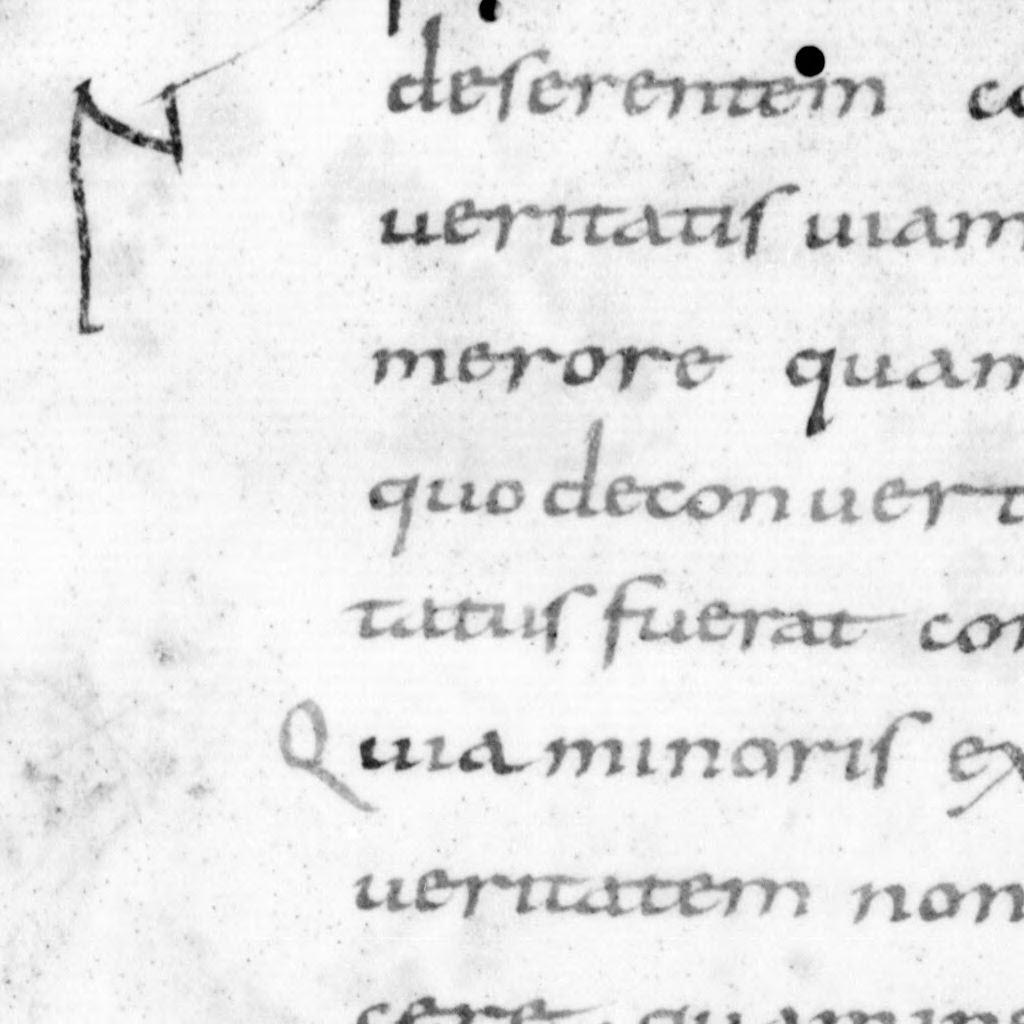 deserentem
ueritatis uiam
merore quam
quo deconuert
tatus fuerat con
Quia minoris ex
ueritatem non
cere quamins